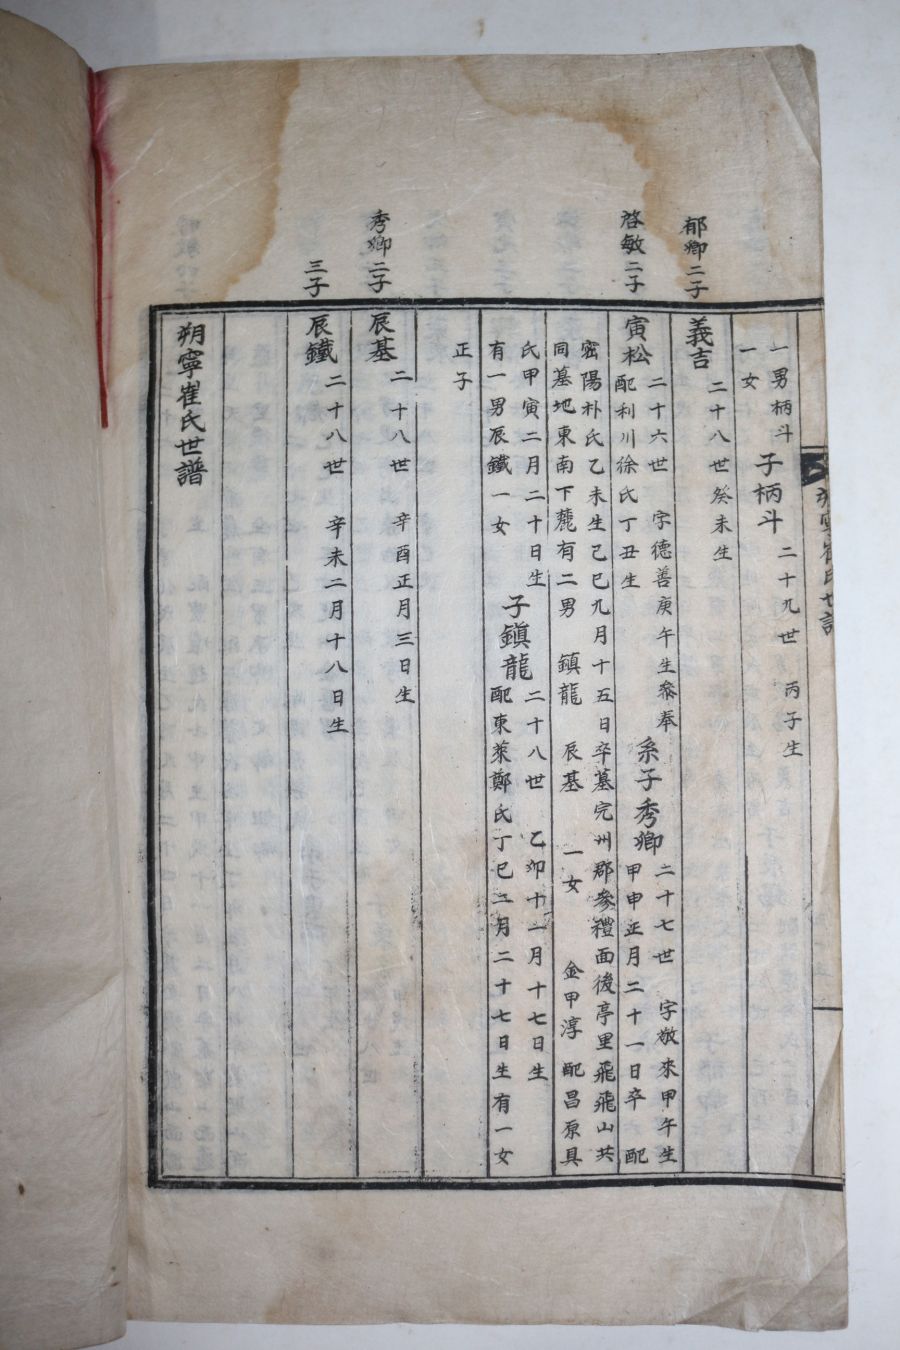 一男柄斗 子柄斗 二十九世 丙子生
一女
郁卿二子
義吉 二十八世癸未生
啓敏二子
寅松 二十六世 字德善庚午生參奉
配利川徐氏丁丑生
系子秀卿 二十七世 字敬來甲午生
甲申正月二十一日卒 配
密陽朴氏乙未生己巳九月十五日卒墓完州郡參禮面後亭里飛飛山共
同墓地東南下麓有二男 鎭龍 辰基 一女 金甲淳 配昌原具
氏甲寅二月二十日生
有一男辰鐵一女
子鎭龍 二十八世 乙卯十一月十七日生
配東萊鄭氏丁巳二月二十七日生有一女
正子
秀卿二子
辰基 二十八世 辛酉正月三日生
三子
辰鐵 二十八世 辛未二月十八日生
朔寧崔氏世譜